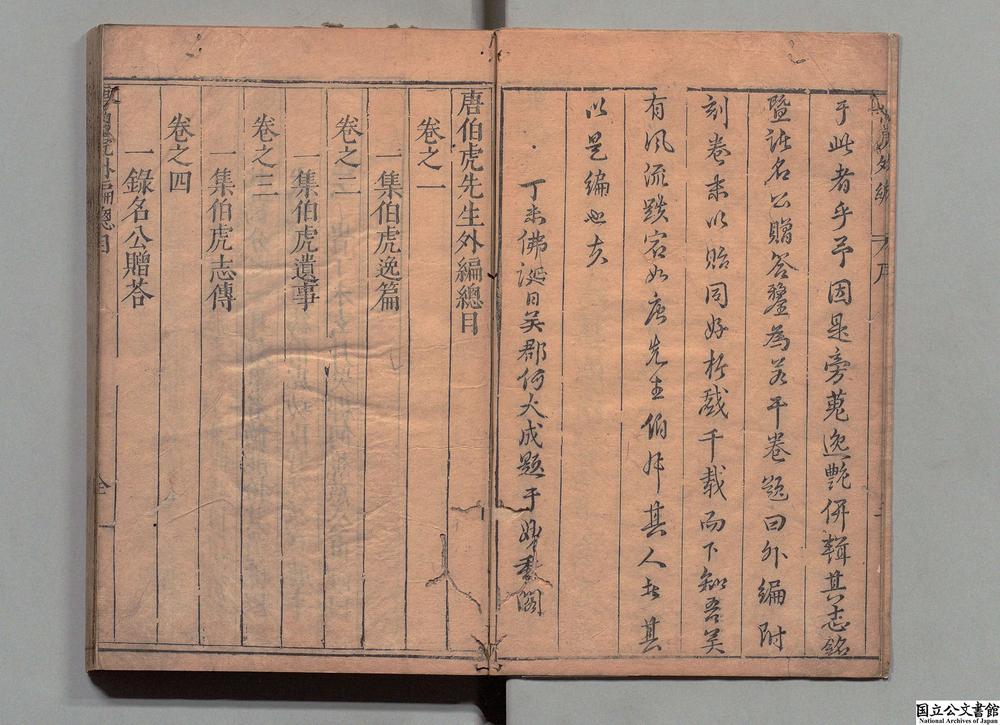 于此者乎予因是旁蒐逸艷併輯其志銘
暨諸名公贈答釐為若干卷題曰外編附
刻卷末以貽同好於戲千載而下知吾吳
有風流跌宕如唐先生伯虎其人者其
以是編也夫
丁未佛誕日吳郡何大成題于妙香閣
唐伯虎先生外編總目
卷之一
一集伯虎逸篇
卷之二
一集伯虎遺事
卷之三
一集伯虎志傳
卷之四
一錄名公贈荅
外編總目
国立公文書館
National Archives of Japan